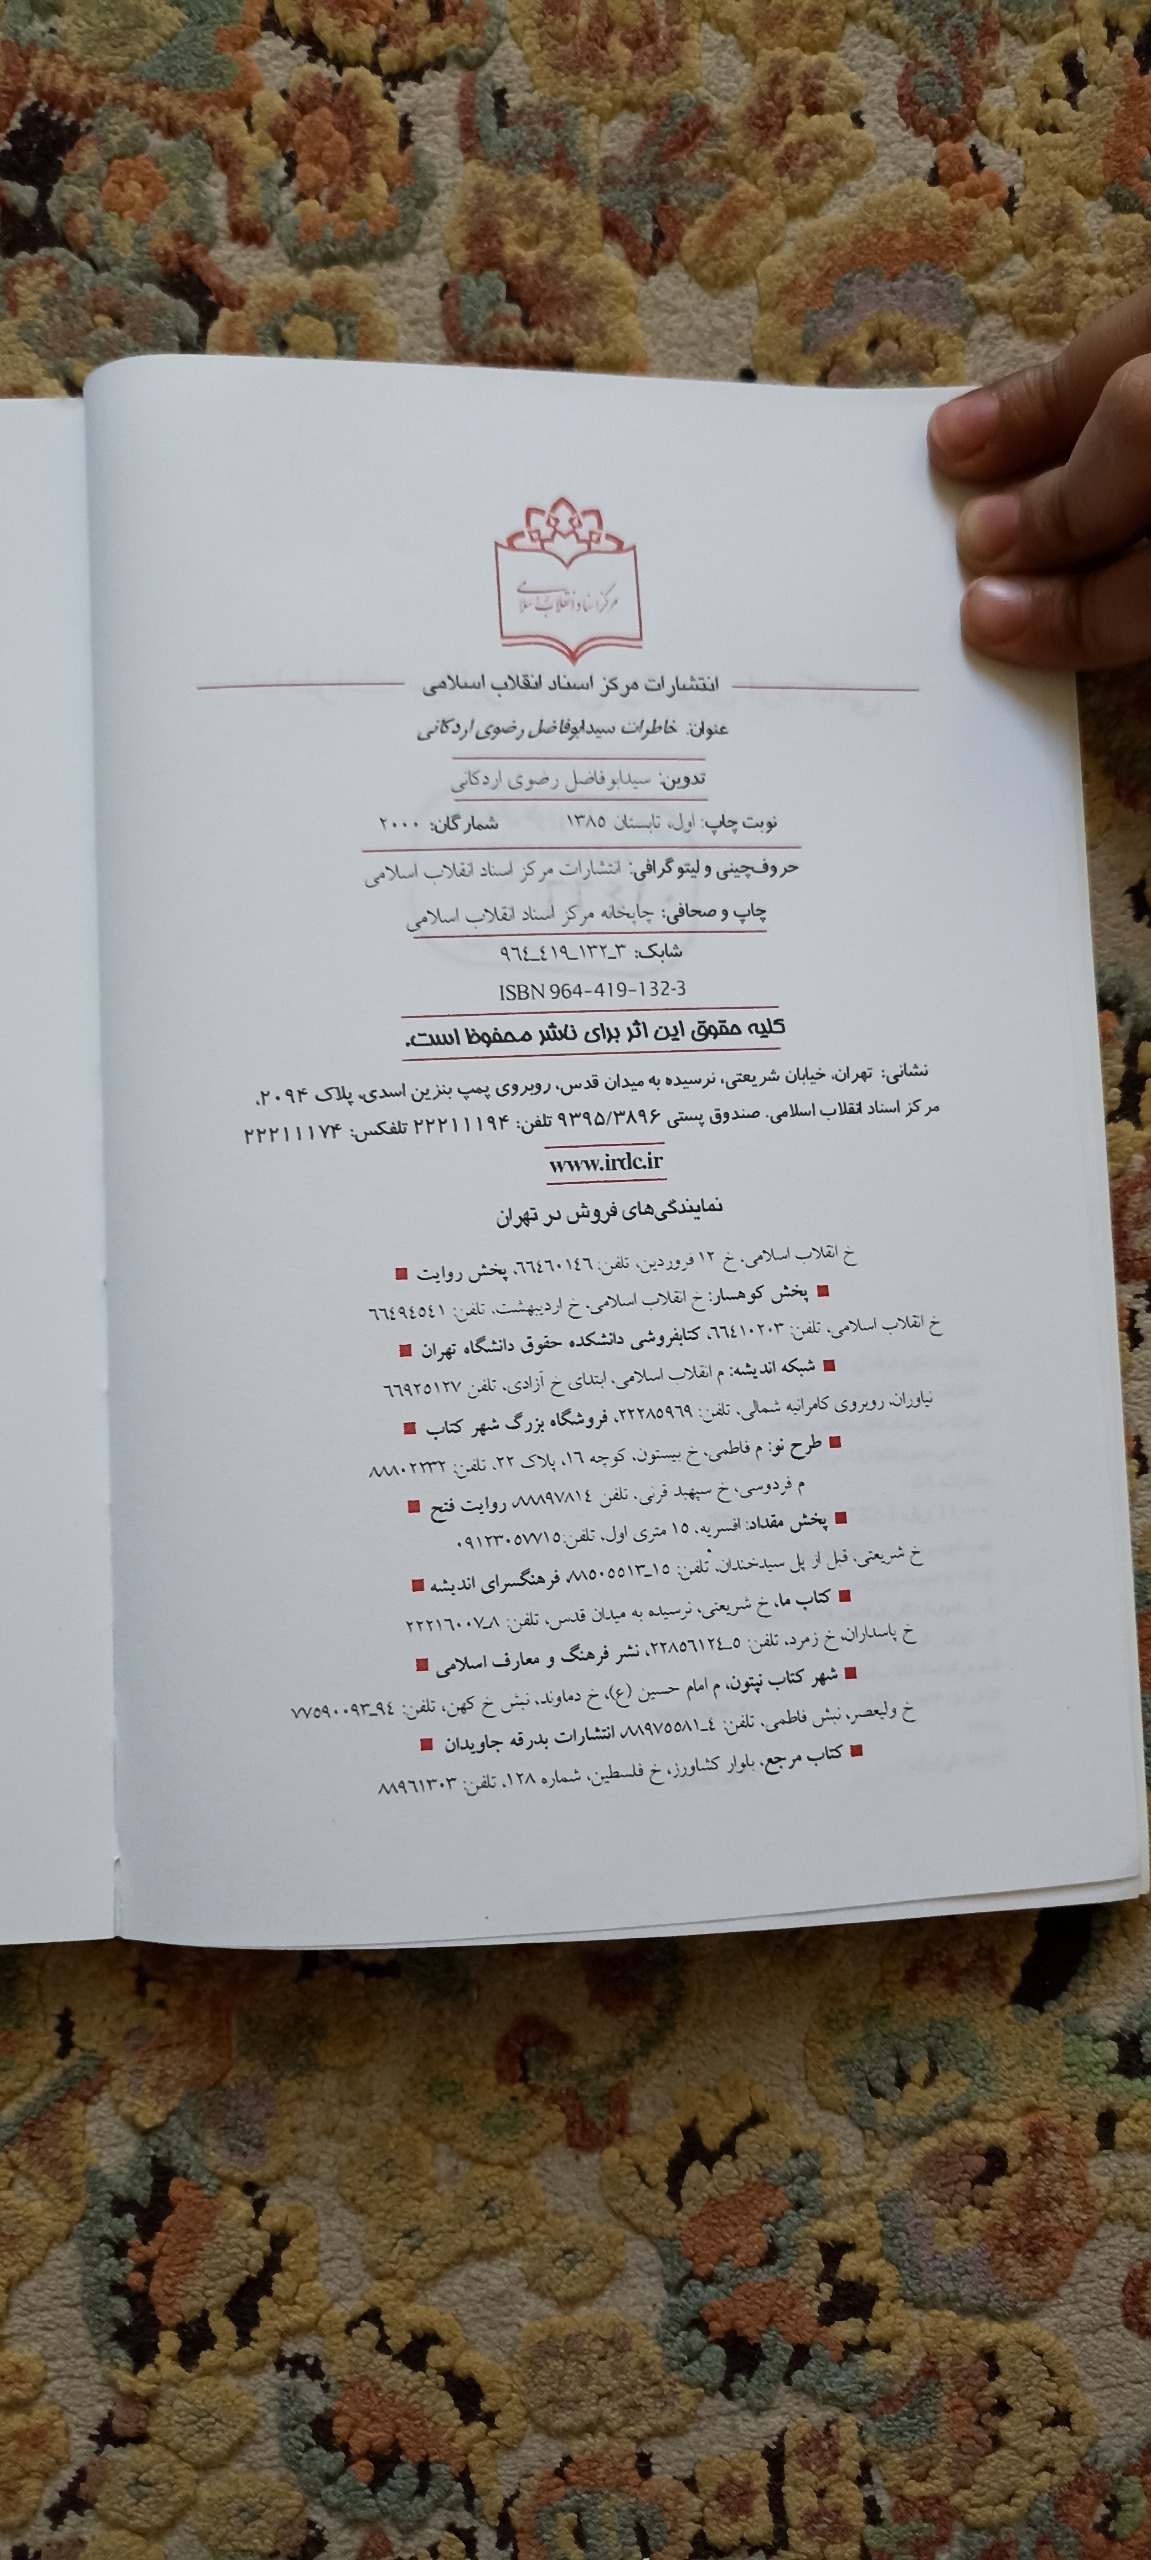 مرکز اسناد انقلاب اسلامی
انتشارات مرکز اسناد انقلاب اسلامی
عنوان: خاطرات سیدابوفاضل رضوی اردکانی
تدوین: سیدابوفاضل رضوی اردکانی
نوبت چاپ: اول، تابستان ۱۳۸۵ شمارگان: ۲۰۰۰
حروف‌چینی و لیتوگرافی: انتشارات مرکز اسناد انقلاب اسلامی
چاپ و صحافی: چاپخانه مرکز اسناد انقلاب اسلامی
شابک: ۳_۱۳۲_۴۱۹_۹۶۴
ISBN 964-419-132-3
کلیه حقوق این اثر برای ناشر محفوظ است.
نشانی: تهران، خیابان شریعتی، نرسیده به میدان قدس، روبروی پمپ بنزین اسدی، پلاک ۲۰۹۴،
مرکز اسناد انقلاب اسلامی. صندوق پستی ۹۳۹۵/۳۸۹۶ تلفن: ۲۲۲۱۱۱۹۴ تلفکس: ۲۲۲۱۱۱۷۴
www.irdc.ir
نمایندگی‌های فروش در تهران
خ انقلاب اسلامی. خ ۱۲ فروردین، تلفن: ۶۶۴۶۰۱۴۶، پخش روایت ■
■ پخش کوهسار: خ انقلاب اسلامی. خ اردیبهشت. تلفن: ۶۶۴۹۴۵۴۱
خ انقلاب اسلامی، تلفن: ۶۶۴۱۰۲۰۳، کتابفروشی دانشکده حقوق دانشگاه تهران ■
■ شبکه اندیشه: م انقلاب اسلامی، ابتدای خ آزادی، تلفن ۶۶۹۲۵۱۲۷
نیاوران، روبروی کامرانیه شمالی، تلفن: ۲۲۲۸۵۹۶۹، فروشگاه بزرگ شهر کتاب ■
■ طرح نو: م فاطمی، خ بیستون، کوچه ۱۶، پلاک ۲۲، تلفن: ۸۸۸۰۲۲۳۲
م فردوسی، خ سپهبد قرنی، تلفن ۸۸۸۹۷۸۱۴، روایت فتح ■
■ پخش مقداد: افسریه، ۱۵ متری اول، تلفن:۰۹۱۲۳۰۵۷۷۱۵
خ شریعتی، قبل از پل سیدخندان، تلفن: ۱۵_۸۸۵۰۵۵۱۳، فرهنگسرای اندیشه ■
■ کتاب ما، خ شریعتی، نرسیده به میدان قدس، تلفن: ۸_۲۲۲۱۶۰۰۷
خ پاسداران، خ زمرد، تلفن: ۵_۲۲۸۵۶۱۲۴، نشر فرهنگ و معارف اسلامی ■
■ شهر کتاب نپتون، م امام حسین (ع)، خ دماوند، نبش خ کهن، تلفن: ۹۴_۷۷۵۹۰۰۹۳
خ ولیعصر، نبش فاطمی، تلفن: ۴_۸۸۹۷۵۵۸۱، انتشارات بدرقه جاویدان ■
■ کتاب مرجع، بلوار کشاورز، خ فلسطین، شماره ۱۲۸، تلفن: ۸۸۹۶۱۳۰۳